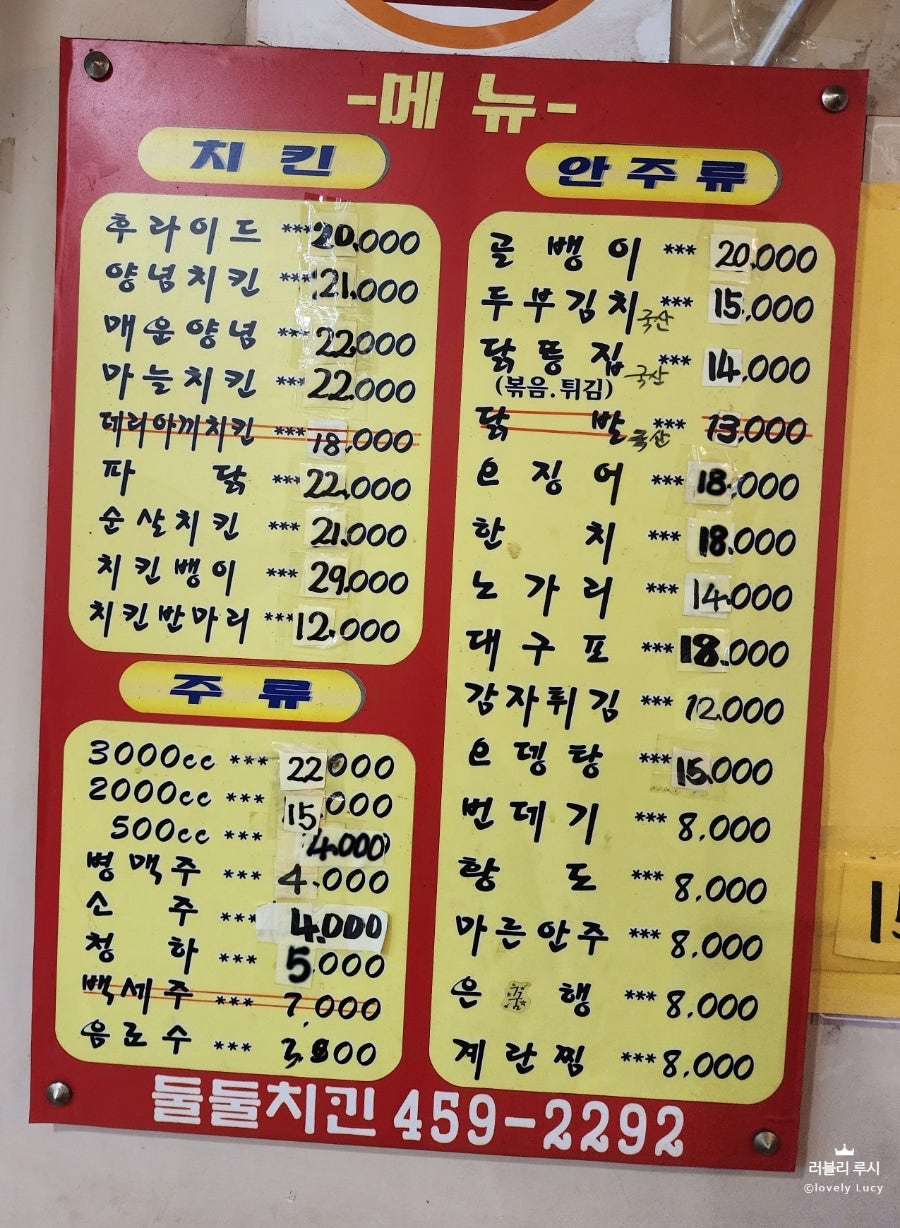 -메뉴-
치킨
후라이드 ***20.000
양념치킨 ***21.000
매운양념 ***22.000
마늘치킨 ***22.000
데리야끼치킨 ***18.000
파닭 ***22.000
순살치킨 ***21.000
치킨뱅이 ***29.000
치킨반마리 ***12.000
주류
3000cc *** 22000
2000cc *** 15,000
500cc *** 4.000
병맥주 *** 4.000
소주 *** 4.000
청하 *** 5.000
백세주 *** 7,000
음료수 ***
안주류
골뱅이 *** 20.000
두부김치 국산 *** 15,000
닭똥집 국산 *** 14,000
(볶음.튀김)
닭발 국산 *** 13,000
오징어 *** 18.000
한치 *** 18.000
노가리 *** 14.000
대구포 *** 18.000
감자튀김 *** 12.000
오뎅탕 *** 15.000
번데기 *** 8,000
황도 *** 8,000
마른안주 *** 8,000
은행 *** 8,000
계란찜 *** 8,000
둘둘치킨 459-2292
러블리 루시
©lovely Lucy